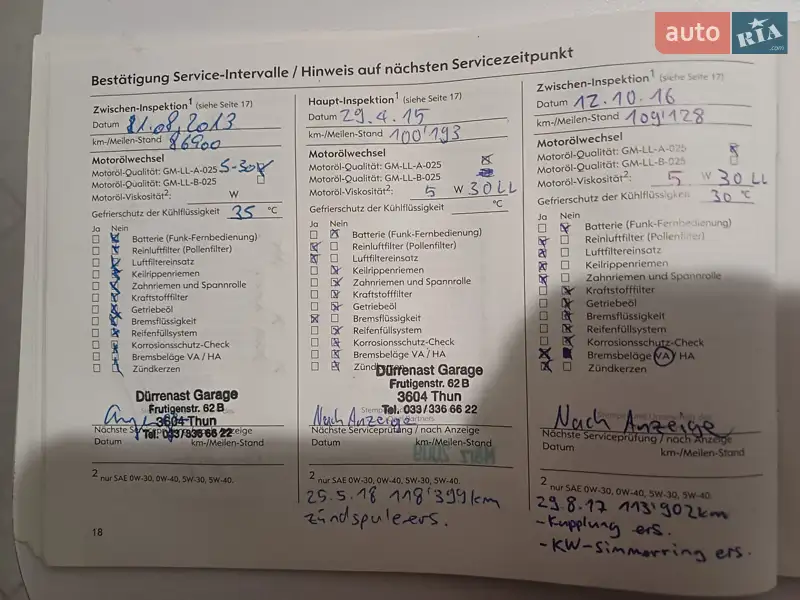 auto RIA .com
Bestätigung Service-Intervalle / Hinweis auf nächsten Servicezeitpunkt
Zwischen-Inspektion¹ (siehe Seite 17)
Datum 21.08.2013
km-/Meilen-Stand 86900
Motorölwechsel
Motoröl-Qualität: GM-LL-A-025 5-30
Motoröl-Qualität: GM-LL-B-025
Motoröl-Viskosität²: W
Gefrierschutz der Kühlflüssigkeit 35 °C
Ja Nein
Batterie (Funk-Fernbedienung)
Reinluftfilter (Pollenfilter)
Luftfiltereinsatz
Keilrippenriemen
Zahnriemen und Spannrolle
Kraftstofffilter
Getriebeöl
Bremsflüssigkeit
Reifenfüllsystem
Korrosionsschutz-Check
Bremsbeläge VA / HA
Zündkerzen
Dürrenast Garage
Frutigenstr. 62 B
3604 Thun
Tel. 033/336 66 22
Nächste Serviceprüfung / nach Anzeige
Datum km-/Meilen-Stand
² nur SAE 0W-30, 0W-40, 5W-30, 5W-40.
18
Haupt-Inspektion¹ (siehe Seite 17)
Datum 29.4.15
km-/Meilen-Stand 100'193
Motorölwechsel
Motoröl-Qualität: GM-LL-A-025
Motoröl-Qualität: GM-LL-B-025
Motoröl-Viskosität²: 5 W 30 LL
Gefrierschutz der Kühlflüssigkeit °C
Ja Nein
Batterie (Funk-Fernbedienung)
Reinluftfilter (Pollenfilter)
Luftfiltereinsatz
Keilrippenriemen
Zahnriemen und Spannrolle
Kraftstofffilter
Getriebeöl
Bremsflüssigkeit
Reifenfüllsystem
Korrosionsschutz-Check
Bremsbeläge VA / HA
Zündkerzen
Dürrenast Garage
Frutigenstr. 62 B
3604 Thun
Tel. 033/336 66 22
Nach Anzeige
Nächste Serviceprüfung / nach Anzeige
Datum km-/Meilen-Stand
März 2019
² nur SAE 0W-30, 0W-40, 5W-30, 5W-40.
25.5.18 118'399km
zündspule ers.
Zwischen-Inspektion¹ (siehe Seite 17)
Datum 12.10.16
km-/Meilen-Stand 109'128
Motorölwechsel
Motoröl-Qualität: GM-LL-A-025
Motoröl-Qualität: GM-LL-B-025
Motoröl-Viskosität²: 5 W 30 LL
Gefrierschutz der Kühlflüssigkeit 30 °C
Ja Nein
Batterie (Funk-Fernbedienung)
Reinluftfilter (Pollenfilter)
Luftfiltereinsatz
Keilrippenriemen
Zahnriemen und Spannrolle
Kraftstofffilter
Getriebeöl
Bremsflüssigkeit
Reifenfüllsystem
Korrosionsschutz-Check
Bremsbeläge VA / HA
Zündkerzen
Nach Anzeige
Nächste Serviceprüfung / nach Anzeige
Datum km-/Meilen-Stand
² nur SAE 0W-30, 0W-40, 5W-30, 5W-40.
29.8.17 113'902km
-Kupplung ers.
-KW-Simmerring ers.